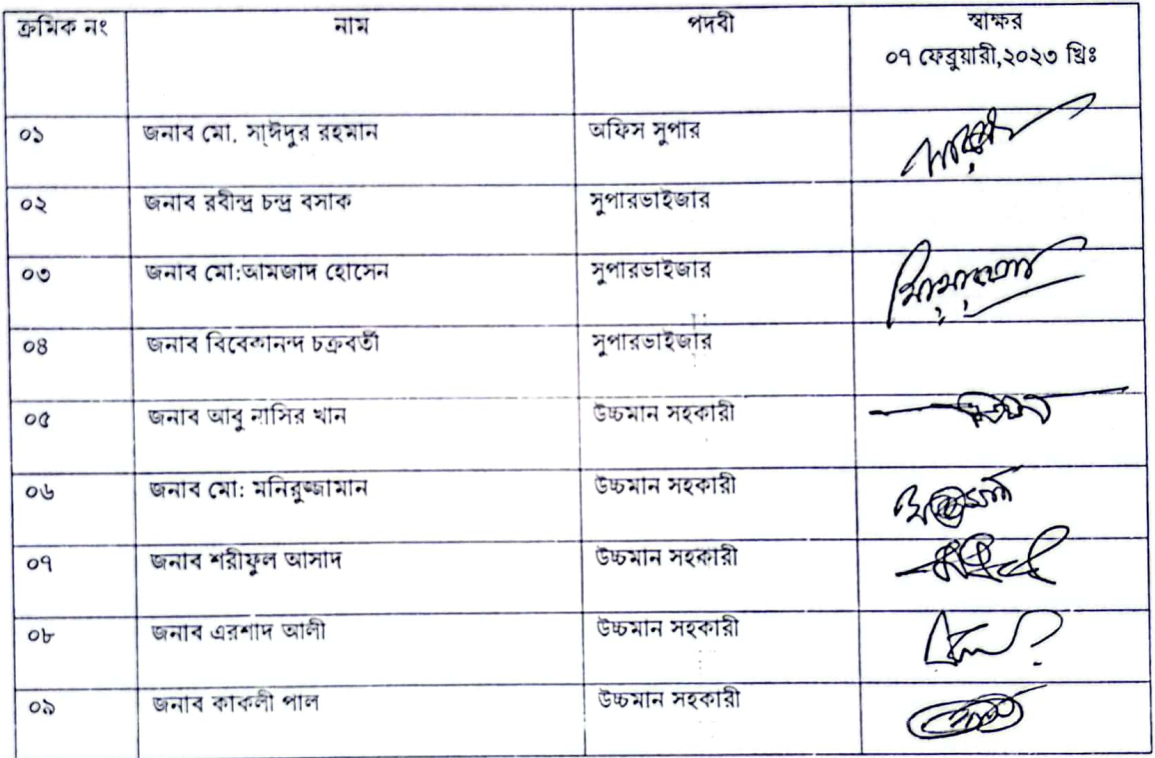 ক্রমিক নং নাম পদবী স্বাক্ষর
০৭ ফেব্রুয়ারী,২০২৩ খ্রিঃ
০১ জনাব মো. সাঈদুর রহমান অফিস সুপার
০২ জনাব রবীন্দ্র চন্দ্র বসাক সুপারভাইজার
০৩ জনাব মো:আমজাদ হোসেন সুপারভাইজার
০৪ জনাব বিবেকানন্দ চক্রবর্তী সুপারভাইজার
০৫ জনাব আবু নাসির খান উচ্চমান সহকারী
০৬ জনাব মো: মনিরুজ্জামান উচ্চমান সহকারী
০৭ জনাব শরীফুল আসাদ উচ্চমান সহকারী
০৮ জনাব এরশাদ আলী উচ্চমান সহকারী
০৯ জনাব কাকলী পাল উচ্চমান সহকারী